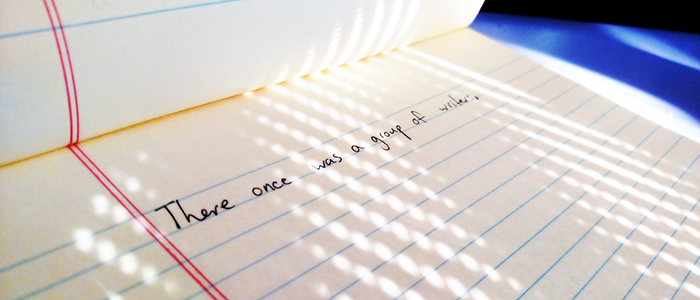 There once was a group of writers.